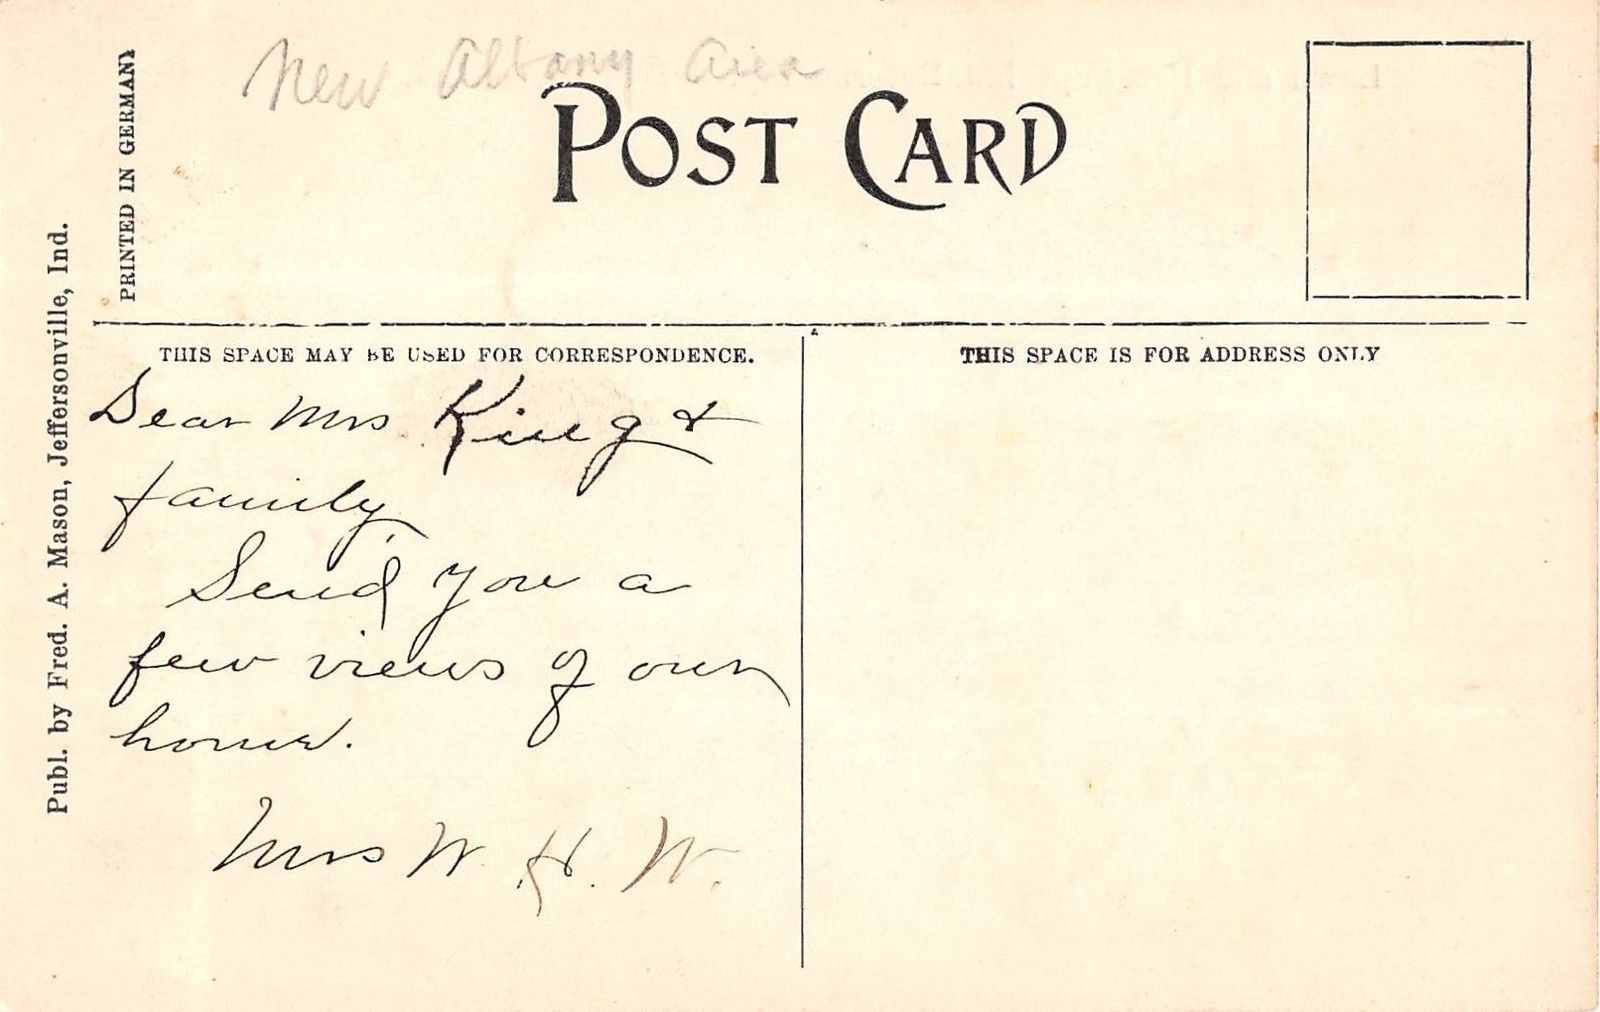 New Albany Area
POST CARD
PRINTED IN GERMANY
Publ. by Fred. A. Mason, Jeffersonville, Ind.
THIS SPACE MAY BE USED FOR CORRESPONDENCE.
THIS SPACE IS FOR ADDRESS ONLY
Dear Mrs King &
family,
Send you a
few views of our
home.
Mrs W. H. W.